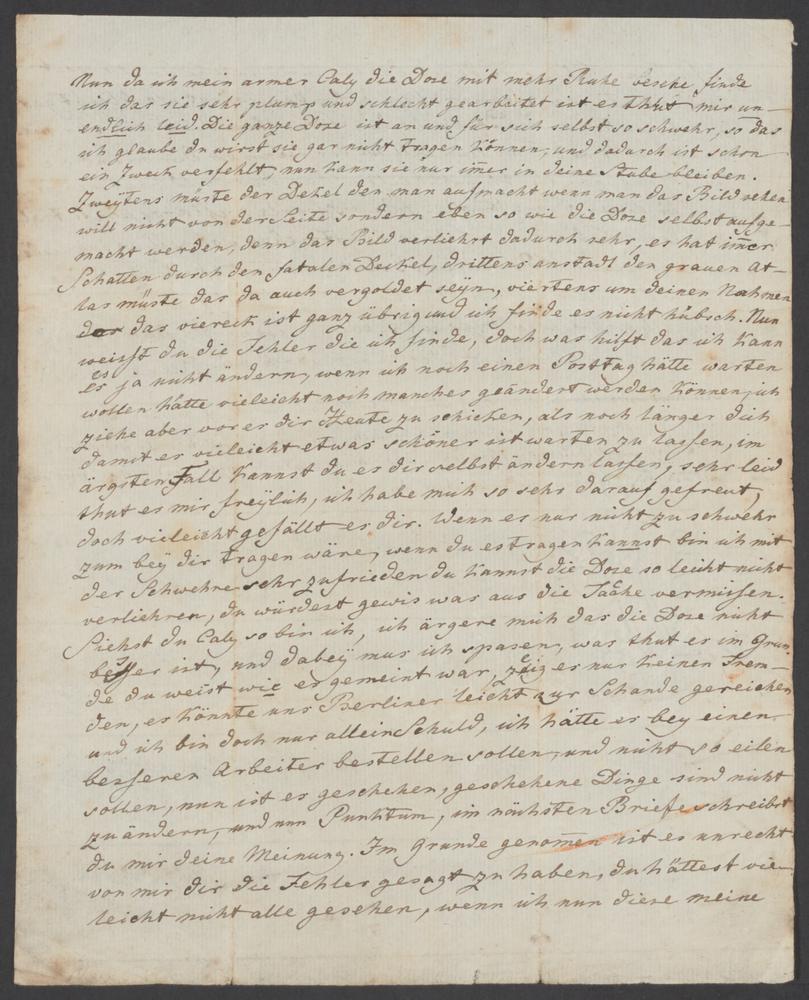 Nun da ich mein armer Caly die Dose mit mehr Ruhe besehe finde
ich das sie sehr plump und schlecht gearbeitet ist es thut mir un-
endlich leid. Die ganze Dose ist an und für sich selbst so schwehr, so das
ich glaube du wirst sie gar nicht tragen können, und dadurch ist schon
ein Zweck verfehlt, nun kann sie nur im̄er in deine Stube bleiben.
Zweytens müste der Dekel den man aufmacht wenn man das Bild sehen
will nicht von der Seite sondern eben so wie die Dose selbst aufge-
macht werden, denn das Bild verliehrt dadurch sehr, es hat im̄er
Schatten durch den fatalen Deckel, drittens anstadt den grauen At-
las müste das da auch vergoldet seyn, viertens um deinen Nahmen
das viereck ist ganz übrig und ich finde es nicht hübsch. Nun
weisst du die Fehler die ich finde, doch was hilft das ich kann
es ja nicht ändern, wenn ich noch einen Posttag hätte warten
wollen hätte vieleicht noch manches geändert werden können, ich
ziehe aber vor es dir Heute zu schicken, als noch länger dich
damit es vieleicht etwas schöner ist warten zu lassen, im
ärgsten Fall kannst du es dir selbst ändern lassen, sehr leid
thut es mir freylich, ich habe mich so sehr darauf gefreut,
doch vieleicht gefällt es dir. Wenn es nur nicht zu schwehr
zum bey dir tragen wäre, wenn du es tragen kannst bin ich mit
der Schwehre sehr zufrieden du kannst die Dose so leicht nicht
verliehren, du würdest gewis was aus die Tasche vermissen.
Siehst du Caly so bin ich, ich ärgere mich das die Dose nicht
besser ist, und dabey mus ich spasen, was thut es im Grun-
de du weist wie es gemeint war, zeig es nur keinen Frem-
den, es könnte uns Berliner leicht zur Schande gereichen
und ich bin doch nur allein Schuld, ich hätte es bey einen
besseren Arbeiter bestellen sollen, und nicht so eilen
sollen, nun ist es geschehen, geschehene Dinge sind nicht
zu ändern, und nun Punktum, im nächsten Briefe schreibst
du mir deine Meinung. Im Grunde genom̄en ist es unrecht
von mir dir die Fehler gesagt zu haben, du hättest vie-
leicht nicht alle gesehen, wenn ich nun diese meine